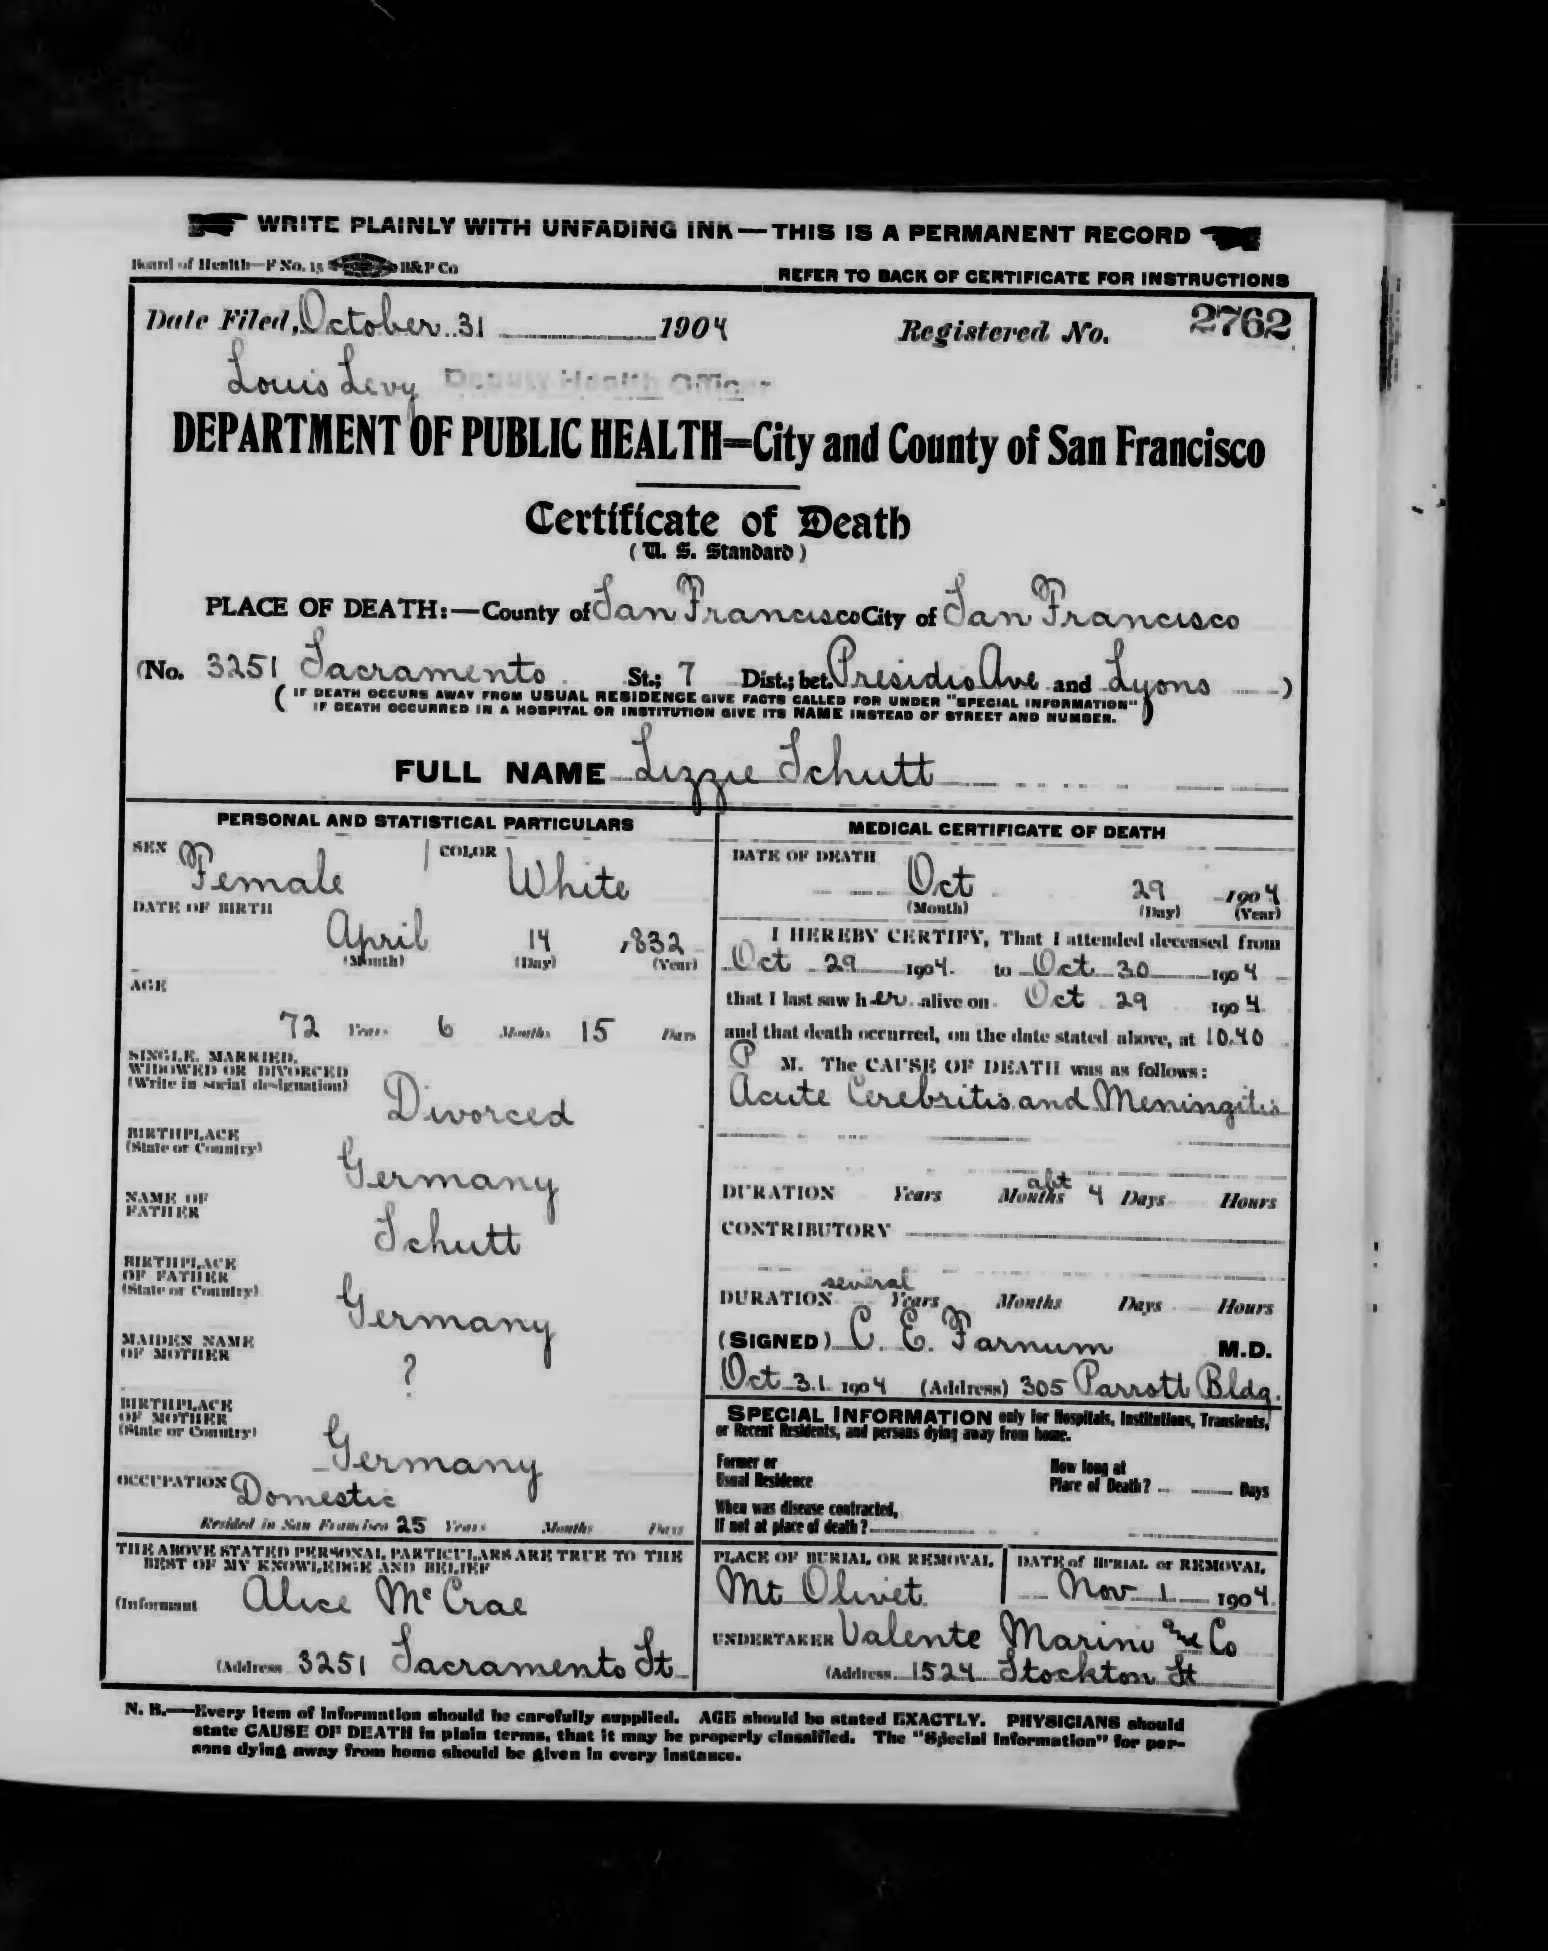 WRITE PLAINLY WITH UNFADING INK—THIS IS A PERMANENT RECORD
Board of Health—F No. 15 B&P Co
REFER TO BACK OF CERTIFICATE FOR INSTRUCTIONS
Date Filed, October 31 1904 Registered No. 2762
Louis Levy Deputy Health Officer
DEPARTMENT OF PUBLIC HEALTH=City and County of San Francisco
Certificate of Death
(U. S. Standard)
PLACE OF DEATH:—County of San Francisco City of San Francisco
(No. 3251 Sacramento St.; 7 Dist.; bet. Presidio Ave and Lyons )
( IF DEATH OCCURS AWAY FROM USUAL RESIDENCE GIVE FACTS CALLED FOR UNDER "SPECIAL INFORMATION"
IF DEATH OCCURRED IN A HOSPITAL OR INSTITUTION GIVE ITS NAME INSTEAD OF STREET AND NUMBER. )
FULL NAME Lizzie Schutt
PERSONAL AND STATISTICAL PARTICULARS
SEX Female COLOR White
DATE OF BIRTH
April 14 1832
(Month) (Day) (Year)
AGE
72 Years 6 Months 15 Days
SINGLE, MARRIED,
WIDOWED OR DIVORCED
(Write in social designation)
Divorced
BIRTHPLACE
(State or Country)
Germany
NAME OF
FATHER
Schutt
BIRTHPLACE
OF FATHER
(State or Country)
Germany
MAIDEN NAME
OF MOTHER
?
BIRTHPLACE
OF MOTHER
(State or Country)
Germany
OCCUPATION Domestic
Resided in San Francisco 25 Years Months Days
THE ABOVE STATED PERSONAL PARTICULARS ARE TRUE TO THE
BEST OF MY KNOWLEDGE AND BELIEF
(Informant Alice McCrae
(Address 3251 Sacramento St
MEDICAL CERTIFICATE OF DEATH
DATE OF DEATH
Oct 29 1904
(Month) (Day) (Year)
I HEREBY CERTIFY, That I attended deceased from
Oct 29 1904. to Oct 30 1904
that I last saw her alive on Oct 29 1904.
and that death occurred, on the date stated above, at 10.40
P M. The CAUSE OF DEATH was as follows:
Acute Cerebritis and Meningitis
abt
DURATION Years Months 4 Days Hours
CONTRIBUTORY
several
DURATION Years Months Days Hours
(SIGNED) C. E. Farnum M.D.
Oct 31. 1904 (Address) 305 Parrott Bldg.
SPECIAL INFORMATION only for Hospitals, Institutions, Transients,
or Recent Residents, and persons dying away from home.
Former or
Usual Residence
How long at
Place of Death? Days
When was disease contracted,
If not at place of death?
PLACE OF BURIAL OR REMOVAL
Mt Olivet
DATE of BURIAL or REMOVAL
Nov 1 1904
UNDERTAKER Valente Marini and Co
(Address. 1524 Stockton St
N. B.—Every item of information should be carefully supplied. AGE should be stated EXACTLY. PHYSICIANS should
state CAUSE OF DEATH in plain terms, that it may be properly classified. The "Special Information" for per-
sons dying away from home should be given in every instance.